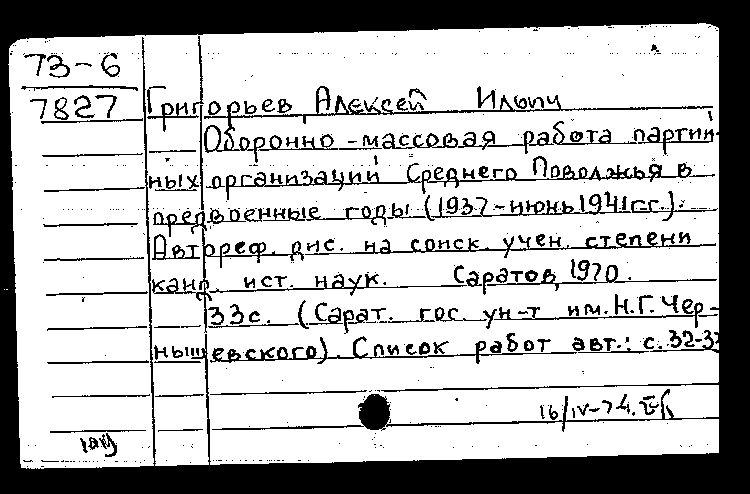 73-6
7827 Григорьев, Алексей Ильич
Оборонно-массовая работа партий-
ных организаций Среднего Поволжья в
предвоенные годы (1937-июнь 1941гг.).
Автореф. дис. на соиск. учен. степени
канд. ист. наук. Саратов, 1970.
33с. (Сарат. гос. ун-т им. Н.Г. Чер-
нышевского). Список работ авт.: с. 32-33
16/IV-74.